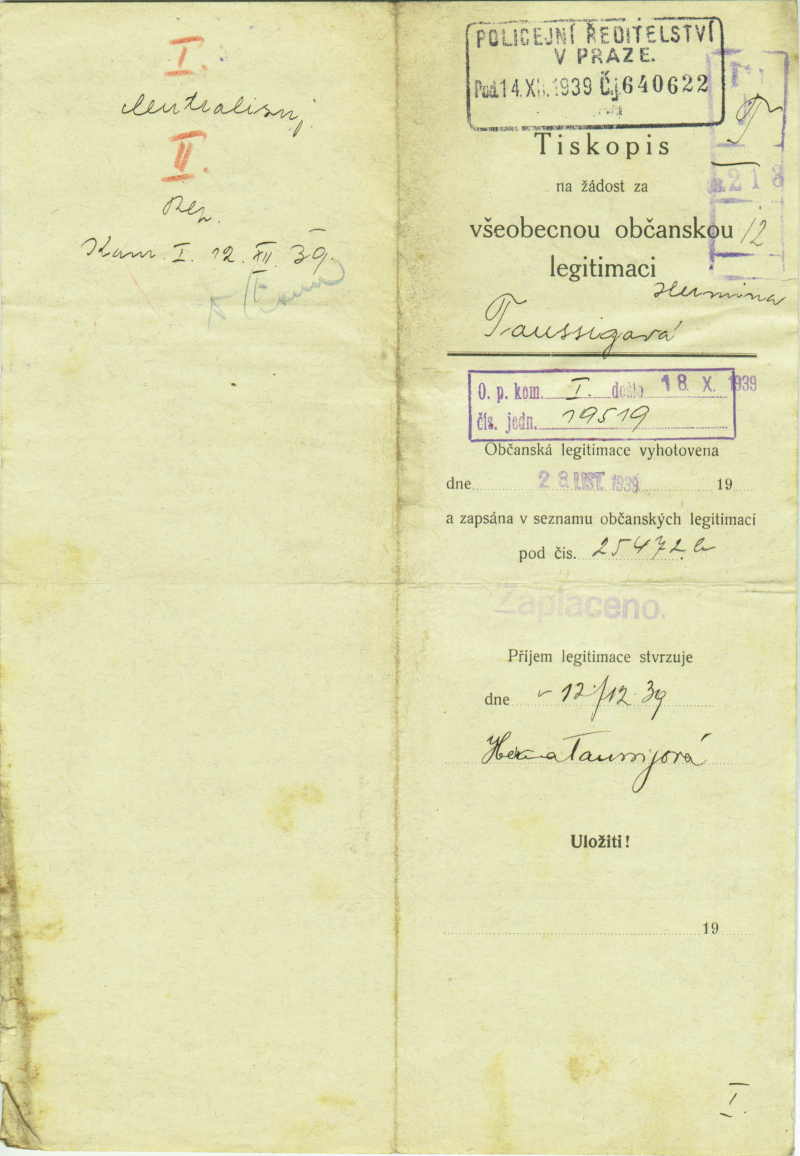 I.
II.
Rep.
Kom. I. 12. XII. 39.
POLICEJNÍ ŘEDITELSTVÍ
V PRAZE.
Pod. 14. XII. 1939 Čj. 640622
T
218
12
Tiskopis
na žádost za
všeobecnou občanskou
legitimaci
Hermina
Taussigová
O. p. kom. I. došlo 18. X. 1939
čís. jedn. 19519
Občanská legitimace vyhotovena
dne 28. LIST. 1939 19
a zapsána v seznamu občanských legitimací
pod čis. 25472
Zaplaceno.
Příjem legitimace stvrzuje
dne 12/12 39
Taussigová
Uložiti!
19
I.